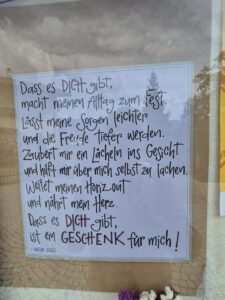 Dass es DICH gibt,
macht meinen Alltag zum Fest
Lässt meine Sorgen leichter
und die Freude tiefer werden.
Zaubert mir ein Lächeln ins Gesicht
und hilft mir über mich selbst zu lachen.
Weitet meinen Horizont
und nährt mein Herz.
Dass es DICH gibt,
ist ein GESCHENK für mich!